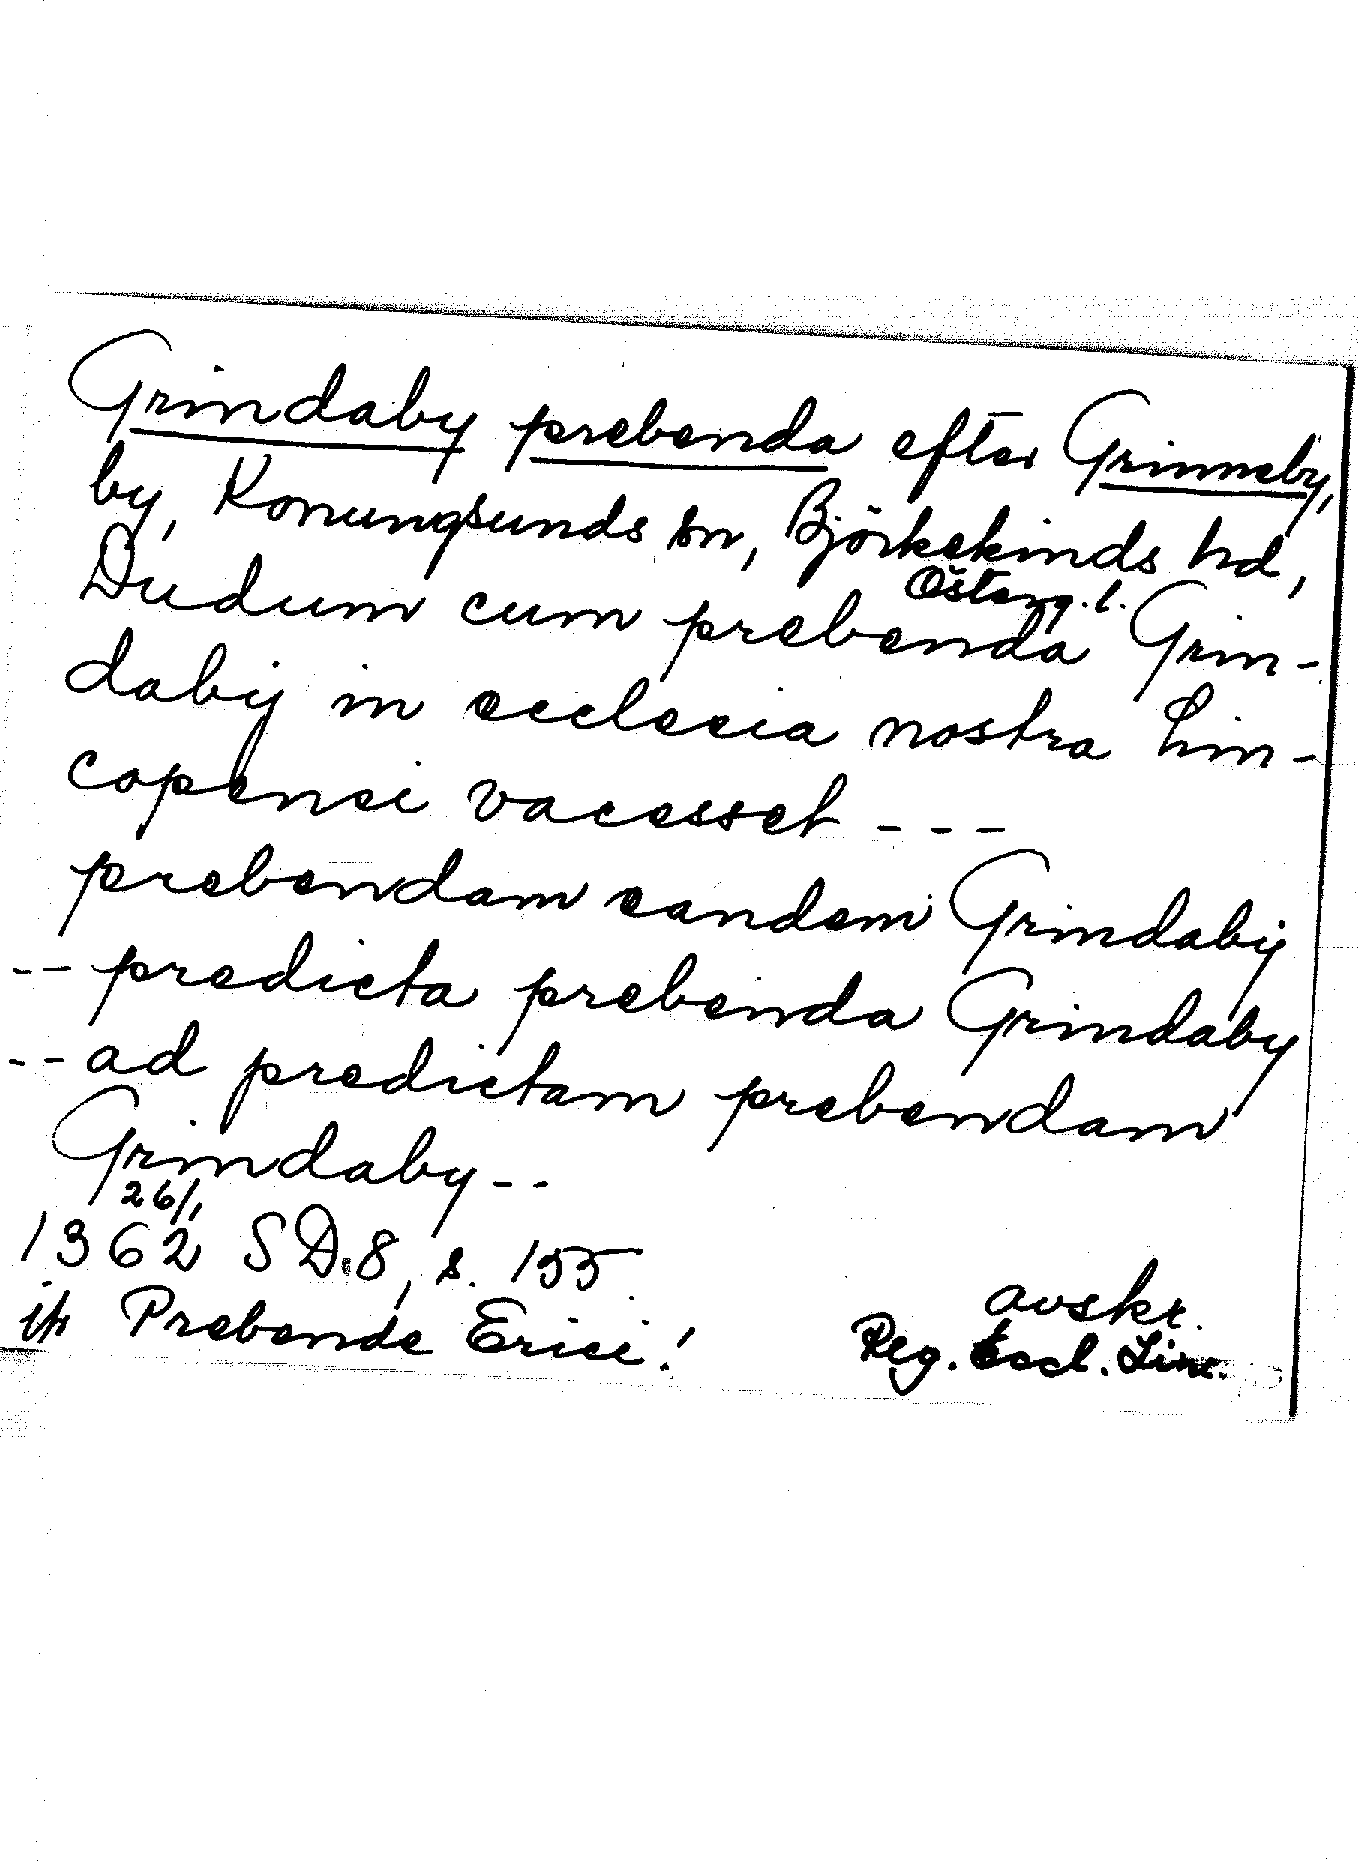 Grindaby prebenda efter Grinneby,
by, Konungsunds sn, Björkekinds hd,
Österg. l.
Dudum cum prebenda Grin-
dabij in ecclesia nostra Lin-
copensi vacasset - - -
prebendam eandem Grindabij
-- predicta prebenda Grindaby
-- ad predictam prebendam
Grindaby --
26/1
1362 SD. 8, s. 155
avskr.
jfr Prebende Erici!
Reg. Eccl. Linc.